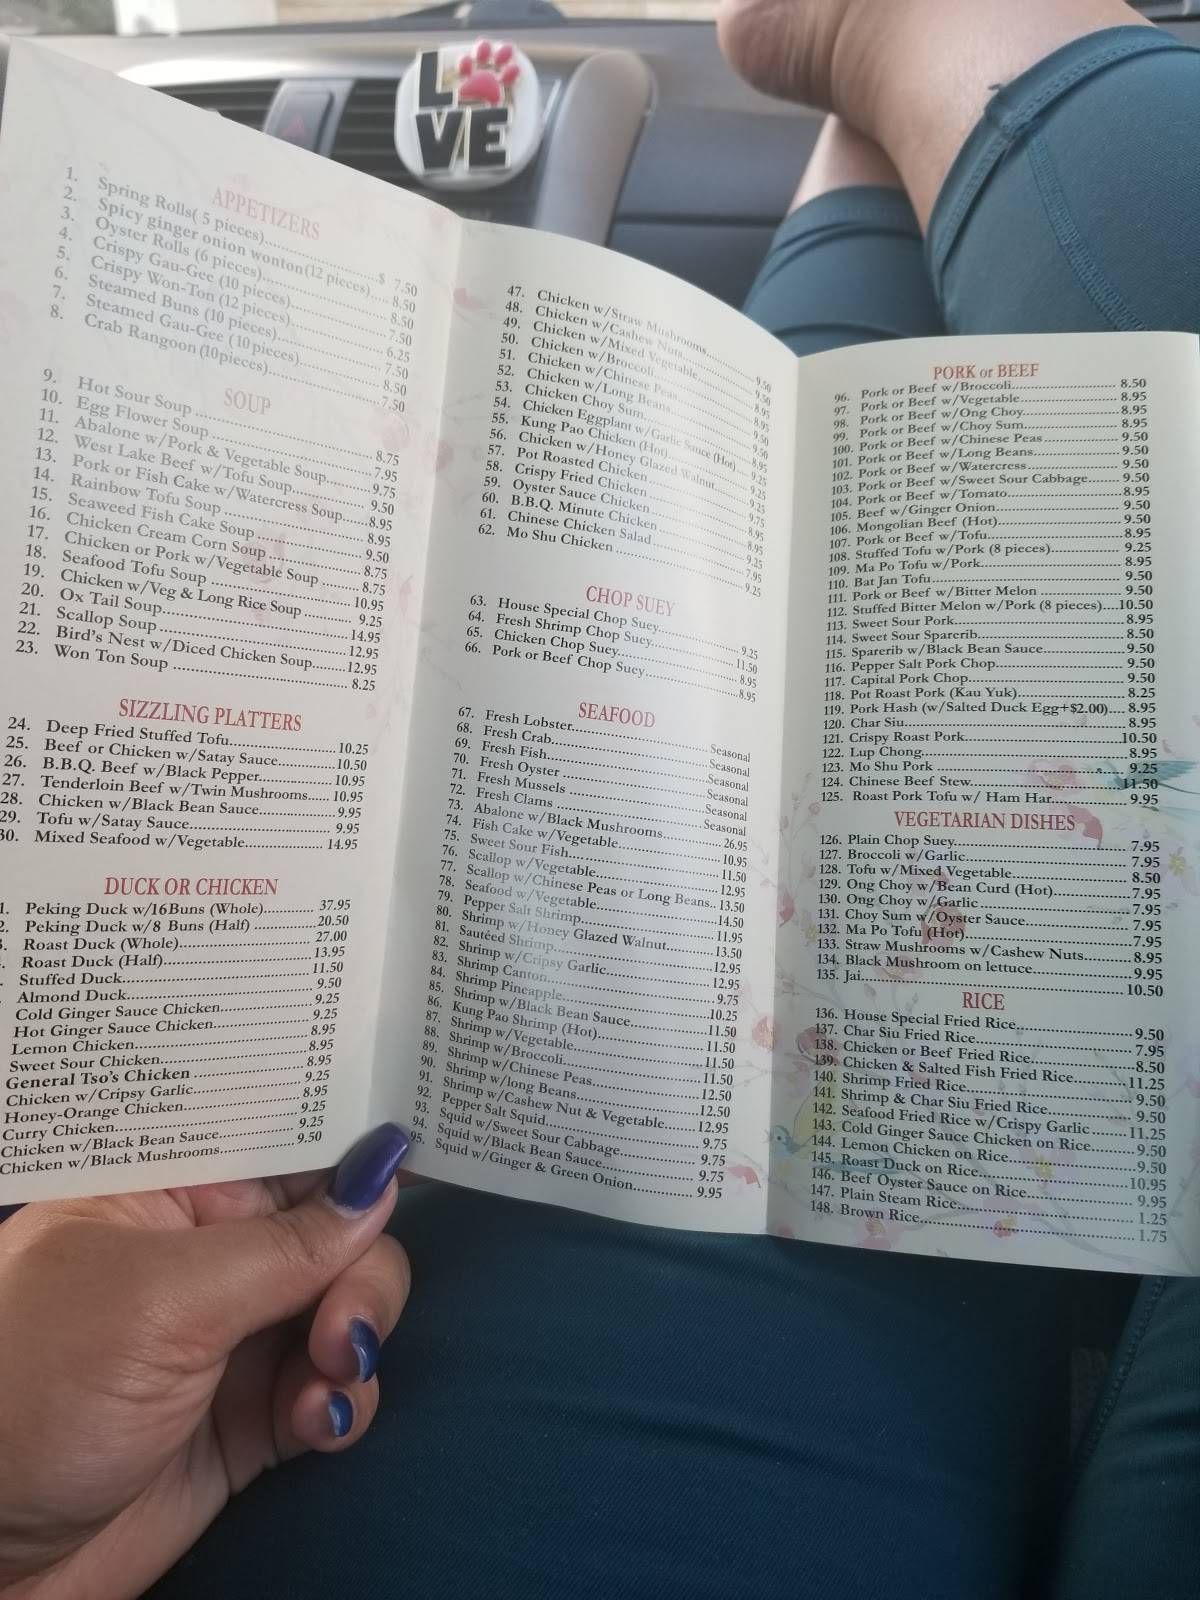 LOVE
APPETIZERS
1. Spring Rolls( 5 pieces)........$ 7.50
2. Spicy ginger onion wonton(12 pieces)....8.50
3. Oyster Rolls (6 pieces)........8.50
4. Crispy Gau-Gee (10 pieces)........7.50
5. Crispy Won-Ton (12 pieces)........6.25
6. Steamed Buns (10 pieces)........7.50
7. Steamed Gau-Gee (10 pieces)........8.50
8. Crab Rangoon (10pieces)........7.50
SOUP
9. Hot Sour Soup ........8.75
10. Egg Flower Soup ........7.95
11. Abalone w/Pork & Vegetable Soup........9.75
12. West Lake Beef w/Tofu Soup........9.50
13. Pork or Fish Cake w/Watercress Soup......8.95
14. Rainbow Tofu Soup ........8.95
15. Seaweed Fish Cake Soup ........9.50
16. Chicken Cream Corn Soup ........8.75
17. Chicken or Pork w/Vegetable Soup ........8.75
18. Seafood Tofu Soup ........10.95
19. Chicken w/Veg & Long Rice Soup ........9.25
20. Ox Tail Soup........14.95
21. Scallop Soup ........12.95
22. Bird's Nest w/Diced Chicken Soup........12.95
23. Won Ton Soup ........8.25
SIZZLING PLATTERS
24. Deep Fried Stuffed Tofu........10.25
25. Beef or Chicken w/Satay Sauce........10.50
26. B.B.Q. Beef w/Black Pepper........10.95
27. Tenderloin Beef w/Twin Mushrooms...... 10.95
28. Chicken w/Black Bean Sauce........9.95
29. Tofu w/Satay Sauce........9.95
30. Mixed Seafood w/Vegetable........14.95
DUCK OR CHICKEN
1. Peking Duck w/16Buns (Whole)........37.95
2. Peking Duck w/8 Buns (Half) ........20.50
Roast Duck (Whole)........27.00
Roast Duck (Half)........13.95
Stuffed Duck........11.50
Almond Duck........9.50
Cold Ginger Sauce Chicken........9.25
Hot Ginger Sauce Chicken........9.25
Lemon Chicken........8.95
Sweet Sour Chicken........8.95
General Tso's Chicken ........8.95
Chicken w/Cripsy Garlic........9.25
Honey-Orange Chicken........8.95
Curry Chicken........9.25
Chicken w/Black Bean Sauce........9.25
Chicken w/Black Mushrooms........9.50
47. Chicken w/Straw Mushrooms........9.50
48. Chicken w/Cashew Nuts........9.50
49. Chicken w/Mixed Vegetable........8.95
50. Chicken w/Broccoli........
51. Chicken w/Chinese Peas........
52. Chicken w/Long Beans........
53. Chicken Choy Sum........
54. Chicken Eggplant w/Garlic Sauce (Hot)....
55. Kung Pao Chicken (Hot)........
56. Chicken w/Honey Glazed Walnut........
57. Pot Roasted Chicken ........
58. Crispy Fried Chicken ........
59. Oyster Sauce Chicken ........
60. B.B.Q. Minute Chicken ........
61. Chinese Chicken Salad ........7.95
62. Mo Shu Chicken ........9.25
CHOP SUEY
63. House Special Chop Suey........9.25
64. Fresh Shrimp Chop Suey........11.50
65. Chicken Chop Suey........8.95
66. Pork or Beef Chop Suey........8.95
SEAFOOD
67. Fresh Lobster........Seasonal
68. Fresh Crab........Seasonal
69. Fresh Fish........Seasonal
70. Fresh Oyster ........Seasonal
71. Fresh Mussels ........Seasonal
72. Fresh Clams ........Seasonal
73. Abalone w/Black Mushrooms........26.95
74. Fish Cake w/Vegetable........10.95
75. Sweet Sour Fish........11.50
76. Scallop w/Vegetable........12.95
77. Scallop w/Chinese Peas or Long Beans.. 13.50
78. Seafood w/Vegetable........14.50
79. Pepper Salt Shrimp........11.95
80. Shrimp w/Honey Glazed Walnut........13.50
81. Sautéed Shrimp........12.95
82. Shrimp w/Cripsy Garlic........12.95
83. Shrimp Canton........9.75
84. Shrimp Pineapple........10.25
85. Shrimp w/Black Bean Sauce........11.50
86. Kung Pao Shrimp (Hot)........11.50
87. Shrimp w/Vegetable........11.50
88. Shrimp w/Broccoli........11.50
89. Shrimp w/Chinese Peas........12.50
90. Shrimp w/long Beans........12.50
91. Shrimp w/Cashew Nut & Vegetable........12.95
92. Pepper Salt Squid........9.75
93. Squid w/Sweet Sour Cabbage........9.75
94. Squid w/Black Bean Sauce........9.75
95. Squid w/Ginger & Green Onion........9.95
PORK or BEEF
96. Pork or Beef w/Broccoli........8.50
97. Pork or Beef w/Vegetable........8.95
98. Pork or Beef w/Ong Choy........8.95
99. Pork or Beef w/Choy Sum........8.95
100. Pork or Beef w/Chinese Peas........9.50
101. Pork or Beef w/Long Beans........9.50
102. Pork or Beef w/Watercress........9.50
103. Pork or Beef w/Sweet Sour Cabbage........9.50
104. Pork or Beef w/Tomato........8.95
105. Beef w/Ginger Onion........9.50
106. Mongolian Beef (Hot)........9.50
107. Pork or Beef w/Tofu........8.95
108. Stuffed Tofu w/Pork (8 pieces)........9.25
109. Ma Po Tofu w/Pork........8.95
110. Bat Jan Tofu........9.50
111. Pork or Beef w/Bitter Melon ........9.50
112. Stuffed Bitter Melon w/Pork (8 pieces)....10.50
113. Sweet Sour Pork........8.95
114. Sweet Sour Sparerib........8.50
115. Sparerib w/Black Bean Sauce........9.50
116. Pepper Salt Pork Chop........9.50
117. Capital Pork Chop........9.50
118. Pot Roast Pork (Kau Yuk)........8.25
119. Pork Hash (w/Salted Duck Egg+$2.00).... 8.95
120. Char Siu........8.95
121. Crispy Roast Pork........10.50
122. Lup Chong........8.95
123. Mo Shu Pork ........9.25
124. Chinese Beef Stew........11.50
125. Roast Pork Tofu w/ Ham Har........9.95
VEGETARIAN DISHES
126. Plain Chop Suey........7.95
127. Broccoli w/Garlic........7.95
128. Tofu w/Mixed Vegetable........8.50
129. Ong Choy w/Bean Curd (Hot)........7.95
130. Ong Choy w/Garlic........7.95
131. Choy Sum w/Oyster Sauce........7.95
132. Ma Po Tofu (Hot)........7.95
133. Straw Mushrooms w/Cashew Nuts........8.95
134. Black Mushroom on lettuce........9.95
135. Jai........10.50
RICE
136. House Special Fried Rice........9.50
137. Char Siu Fried Rice........7.95
138. Chicken or Beef Fried Rice........8.50
139. Chicken & Salted Fish Fried Rice........11.25
140. Shrimp Fried Rice........9.50
141. Shrimp & Char Siu Fried Rice........9.50
142. Seafood Fried Rice w/Crispy Garlic........11.25
143. Cold Ginger Sauce Chicken on Rice........9.50
144. Lemon Chicken on Rice........9.50
145. Roast Duck on Rice........10.95
146. Beef Oyster Sauce on Rice........9.95
147. Plain Steam Rice........1.25
148. Brown Rice........1.75